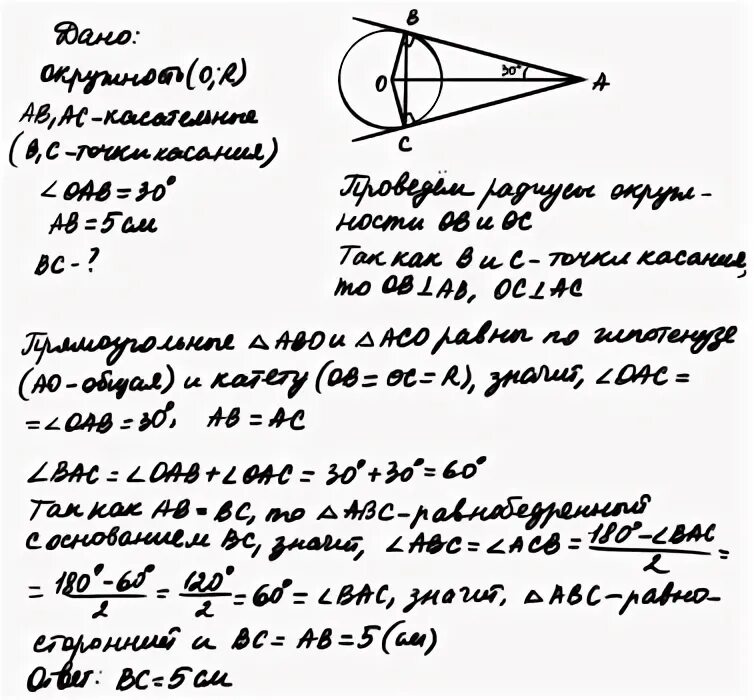 Дано:
окружность (O; R)
AB, AC - касательные
(B, C - точки касания)
∠OAB = 30°
AB = 5 см
BC - ?
B
O
30°
A
C
Проведём радиусы окруж-
ности OB и OC
Так как B и C - точки касания,
то OB ⊥ AB, OC ⊥ AC
Прямоугольные △ABO и △ACO равны по гипотенузе
(AO - общая) и катету (OB = OC = R), значит, ∠OAC =
= ∠OAB = 30°, AB = AC
∠BAC = ∠OAB + ∠OAC = 30° + 30° = 60°
Так как AB = BC, то △ABC - равнобедренный
с основанием BC, значит, ∠ABC = ∠ACB = (180° - ∠BAC)/2 =
= (180° - 60°)/2 = 120°/2 = 60° = ∠BAC, значит, △ABC - равно-
сторонний и BC = AB = 5 (см)
Ответ: BC = 5 см